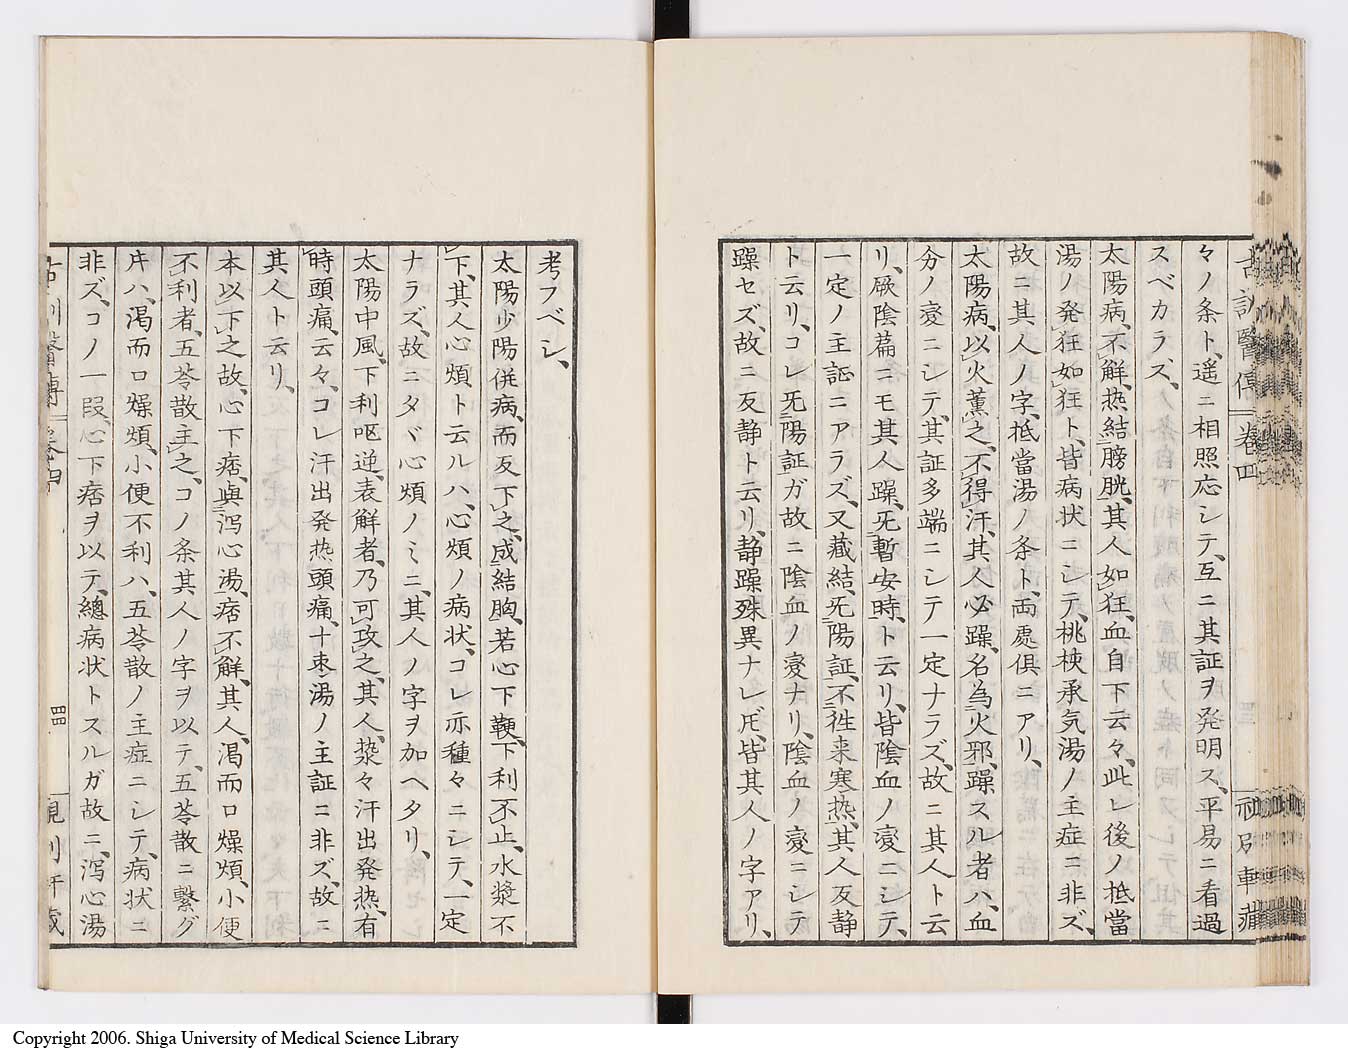 古訓醫傳 卷四
々ノ条ト、遥ニ相照応シテ、互ニ其証ヲ発明ス、平易ニ看過
スベカラス、
太陽病、不解、热結膀胱、其人如狂、血自下云々、此レ後ノ抵當
湯ノ発狂如狂ト、皆病状ニシテ、桃核承気湯ノ主症ニ非ズ、
故ニ其人ノ字、抵當湯ノ条ト、両處俱ニアリ、
太陽病、以火薫之、不得汗、其人必躁、名為火邪、躁スル者ハ、血
分ノ変ニシテ、其証多端ニシテ一定ナラズ、故ニ其人ト云
リ、厥陰篇ニモ其人躁、旡暫安時、ト云リ、皆陰血ノ変ニシテ、
一定ノ主証ニアラズ、又藏結、旡陽証、不徃来寒热、其人反静
ト云リ、コレ旡陽証ガ故ニ陰血ノ変ナリ、陰血ノ変ニシテ
躁セズ、故ニ反静ト云リ、静躁殊異ナレ𪜈、皆其人ノ字アリ、
考フベシ、
太陽少陽併病、而反下之、成結胸、若心下鞕、下利不止、水漿不
下、其人心煩ト云ルハ、心煩ノ病状、コレ亦種々ニシテ、一定
ナラズ、故ニタヾ心煩ノミニ、其人ノ字ヲ加ヘタリ、
太陽中風、下利呕逆、表解者、乃可攻之、其人漐々汗出発热、有
時頭痛、云々、コレ汗出発热頭痛、十枣湯ノ主証ニ非ズ、故ニ
其人ト云リ、
本以下之故、心下痞、與泻心湯、痞不解、其人、渇而口燥煩、小便
不利者、五苓散主之、コノ条其人ノ字ヲ以テ、五苓散ニ繋グ
𪜈ハ、渇而口燥煩、小便不利ハ、五苓散ノ主症ニシテ、病状ニ
非ズ、コノ一段、心下痞ヲ以テ、總病状トスルガ故ニ、泻心湯
四
Copyright 2006. Shiga University of Medical Science Library